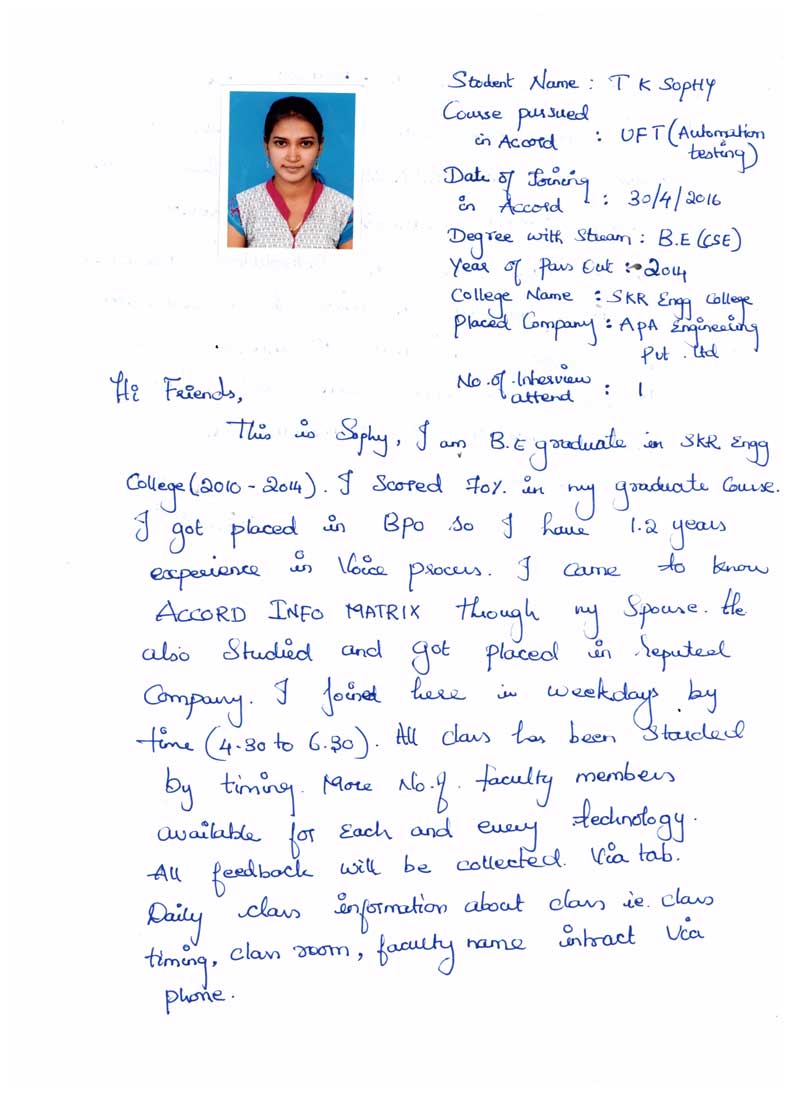 Student Name : T K SopHY
Course pursued
in Accord : UFT (Automation
testing)
Date of Joining
in Accord : 30/4/2016
Degree with Stream : B.E (CSE)
Year of Pass Out :- 2014
College Name : SKR Engg College
Placed Company : ApA Engineering
Pvt . Ltd
No . of . Interview
attend : 1
Hi Friends,
This is Sophy, I am B.E graduate in SKR Engg
College (2010 - 2014) . I Scored 70%. in my graduate Course.
I got placed in BPO so I have 1.2 years
experience in Voice process. I came to know
ACCORD INFO MATRIX through my Spouse. He
also Studied and got placed in reputed
Company. I joined here in weekdays by
time (4.30 to 6.30) . All class has been Started
by timing. More No. of. faculty members
available for each and every technology.
All feedback will be collected Via tab.
Daily class information about class ie. class
timing, class room, faculty name intract Via
phone.